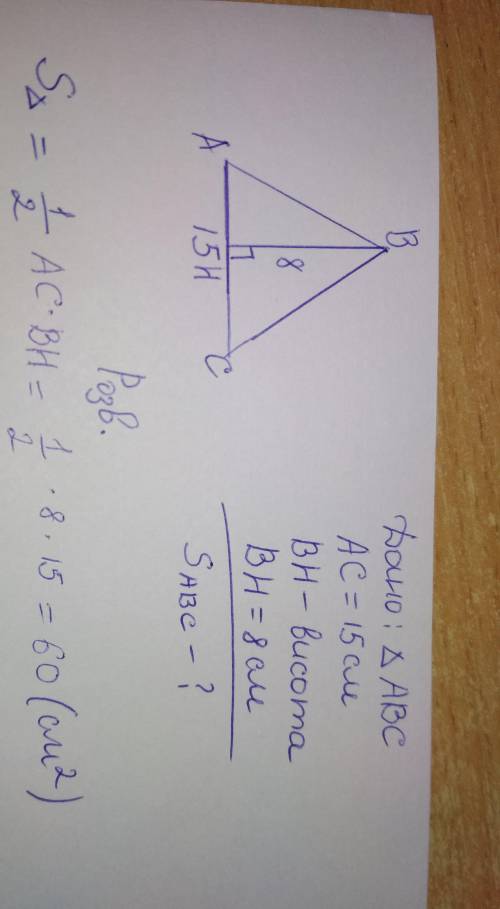 Дано: △ABC
AC = 15 см
BH – висота
BH = 8 см
S_ABC – ?
B
8
A 15 H C
Розв.
S_△ = 1/2 AC · BH = 1/2 · 8 · 15 = 60 (см²)